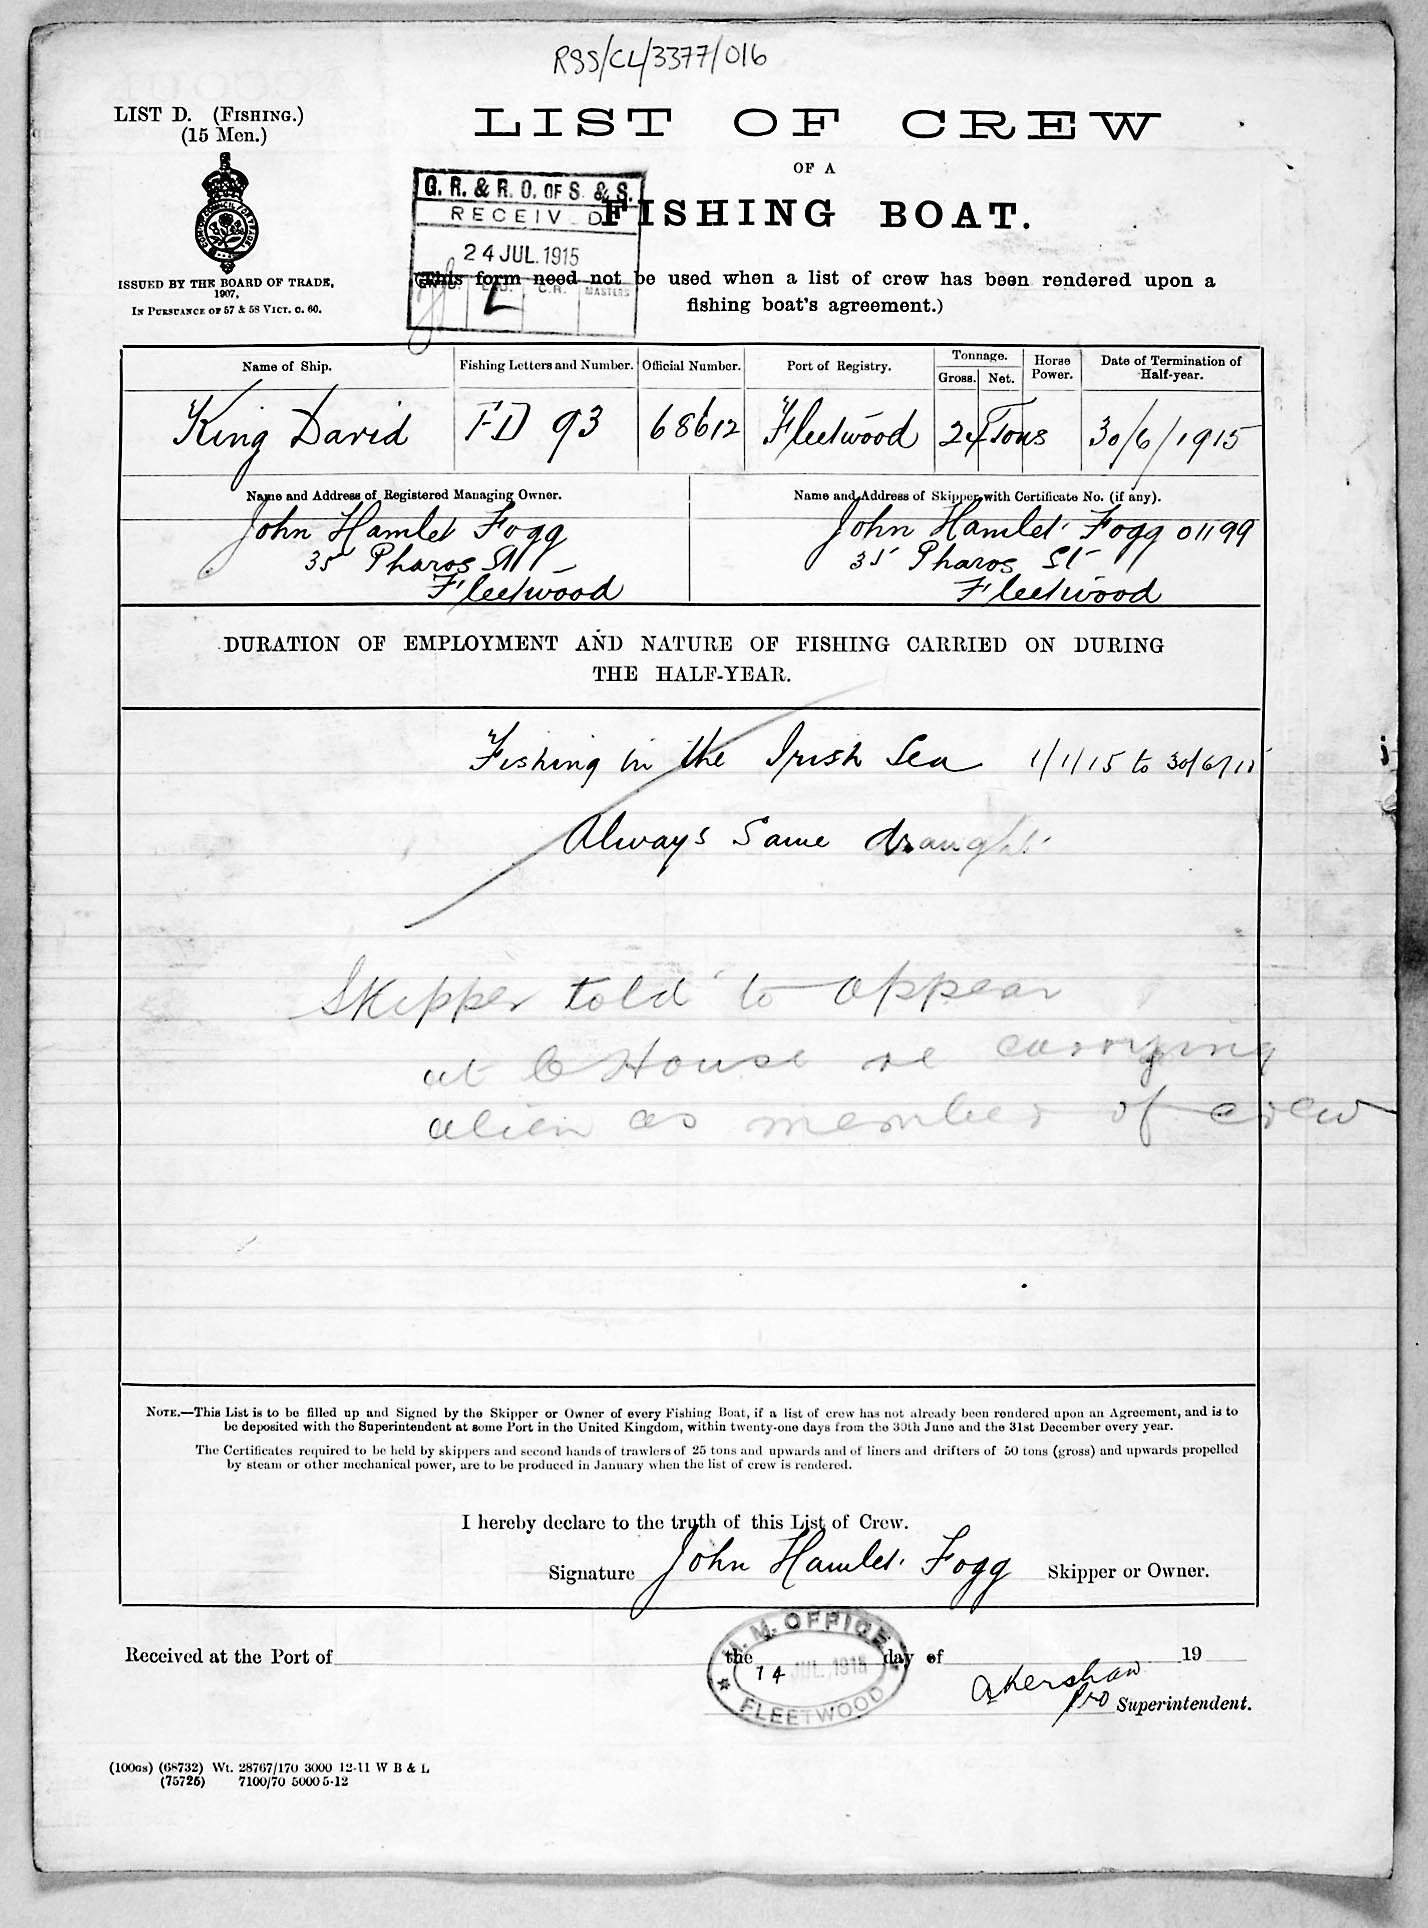 RSS/CL/3377/016
LIST D. (FISHING.)
(15 Men.)
LIST OF CREW
OF A
FISHING BOAT.
G. R. & R. O. OF S. & S.
RECEIV D
24 JUL. 1915
C.R. MASTERS
L
ISSUED BY THE BOARD OF TRADE,
1907,
IN PURSUANCE OF 57 & 58 VICT. C. 60.
(This form need not be used when a list of crew has been rendered upon a
fishing boat's agreement.)
Name of Ship. Fishing Letters and Number. Official Number. Port of Registry. Tonnage. Gross. Net. Horse Power. Date of Termination of Half-year.
King David FD 93 68612 Fleetwood 24 Tons 30/6/1915
Name and Address of Registered Managing Owner. Name and Address of Skipper with Certificate No. (if any).
John Hamlet Fogg John Hamlet Fogg 01199
35 Pharos St 35 Pharos St
Fleetwood Fleetwood
DURATION OF EMPLOYMENT AND NATURE OF FISHING CARRIED ON DURING
THE HALF-YEAR.
Fishing in the Irish Sea 1/1/15 to 30/6/15
Always Same draught
Skipper told to appear
at C House re carrying
alien as member of crew
NOTE.—This List is to be filled up and Signed by the Skipper or Owner of every Fishing Boat, if a list of crew has not already been rendered upon an Agreement, and is to
be deposited with the Superintendent at some Port in the United Kingdom, within twenty-one days from the 30th June and the 31st December every year.
The Certificates required to be held by skippers and second hands of trawlers of 25 tons and upwards and of liners and drifters of 50 tons (gross) and upwards propelled
by steam or other mechanical power, are to be produced in January when the list of crew is rendered.
I hereby declare to the truth of this List of Crew.
Signature John Hamlet Fogg Skipper or Owner.
Received at the Port of the day of 19
M. M. OFFICE
14 JUL. 1915
FLEETWOOD
A Kershaw
pro Superintendent.
(100GS) (68732) Wt. 28767/170 3000 12-11 W B & L
(75725) 7100/70 5000 5-12